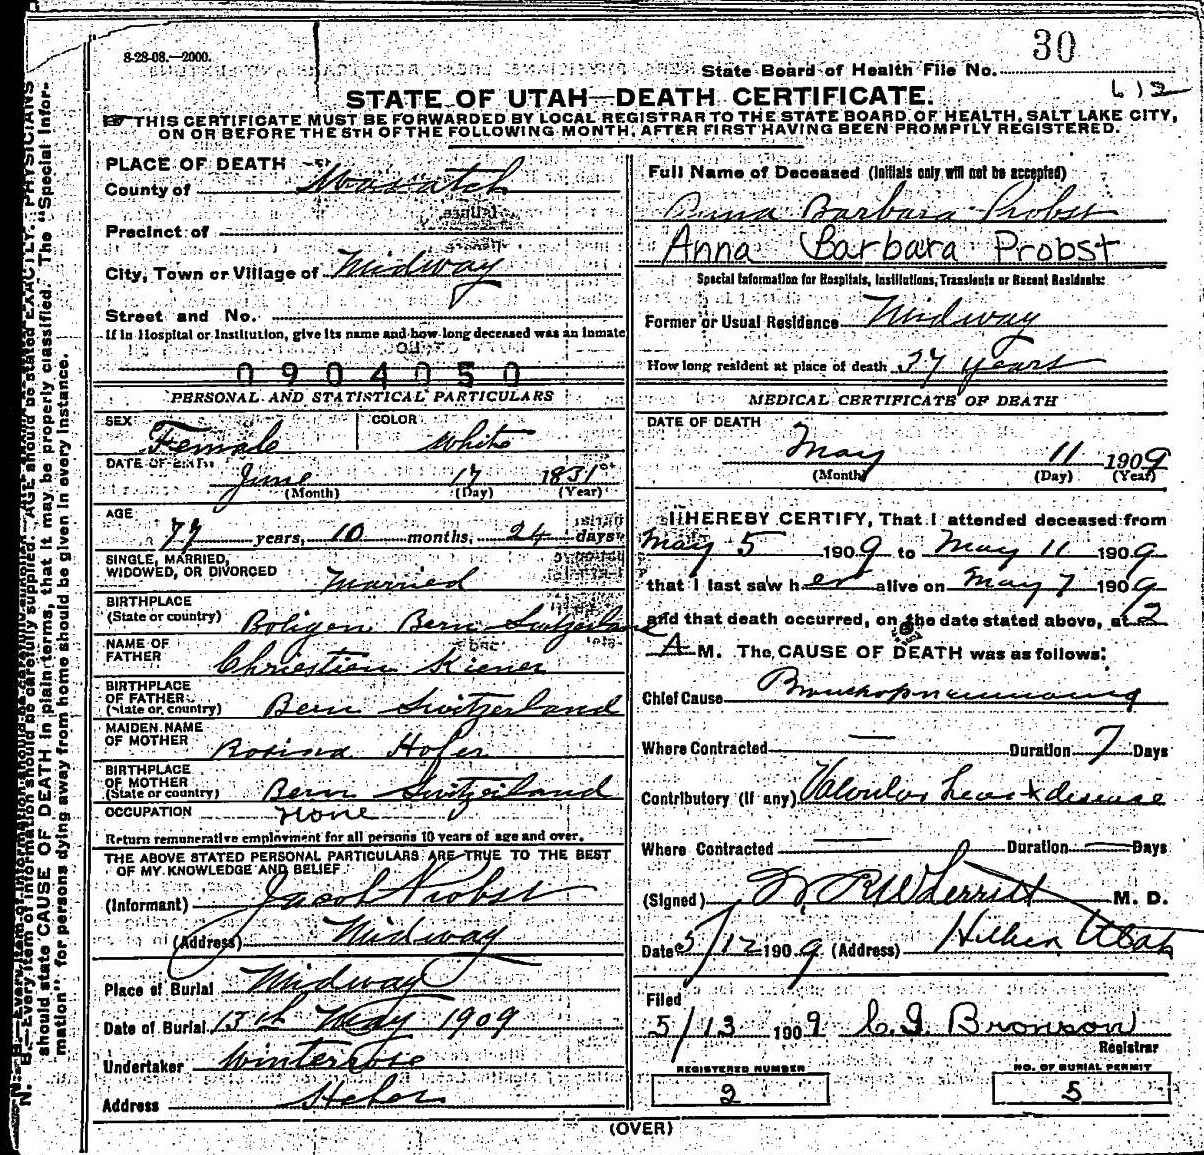 8-28-08.—2000.
30
State Board of Health File No.
612
STATE OF UTAH—DEATH CERTIFICATE.
THIS CERTIFICATE MUST BE FORWARDED BY LOCAL REGISTRAR TO THE STATE BOARD OF HEALTH, SALT LAKE CITY,
ON OR BEFORE THE 5TH OF THE FOLLOWING MONTH, AFTER FIRST HAVING BEEN PROMPTLY REGISTERED.
PLACE OF DEATH
County of Wasatch
Precinct of
City, Town or Village of Midway
Street and No.
If in Hospital or Institution, give its name and how long deceased was an inmate
0904050
PERSONAL AND STATISTICAL PARTICULARS
SEX Female COLOR White
DATE OF BIRTH June 17 1831
(Month) (Day) (Year)
AGE 77 years, 10 months, 24 days
SINGLE, MARRIED,
WIDOWED, OR DIVORCED Married
BIRTHPLACE
(State or country) Boligen Bern Switzerland
NAME OF
FATHER Chriestien Kiener
BIRTHPLACE
OF FATHER
(State or country) Bern Switzerland
MAIDEN NAME
OF MOTHER Rosina Hofer
BIRTHPLACE
OF MOTHER
(State or country) Bern Switzerland
OCCUPATION None
Return remunerative employment for all persons 10 years of age and over.
THE ABOVE STATED PERSONAL PARTICULARS ARE TRUE TO THE BEST
OF MY KNOWLEDGE AND BELIEF
(Informant) Jacob Probst
(Address) Midway
Place of Burial Midway
Date of Burial 13th May 1909
Undertaker Winterrose
Address Heber
Full Name of Deceased (Initials only will not be accepted)
Anna Barbara Probst
Anna Barbara Probst
Special Information for Hospitals, Institutions, Transients or Recent Residents:
Former or Usual Residence Midway
How long resident at place of death 37 years
MEDICAL CERTIFICATE OF DEATH
DATE OF DEATH
May 11 1909
(Month) (Day) (Year)
I HEREBY CERTIFY, That I attended deceased from
May 5 1909 to May 11 1909
that I last saw her alive on May 7 1909
and that death occurred, on the date stated above, at 2
A M. The CAUSE OF DEATH was as follows:
Chief Cause Bronchopneumonia
Where Contracted — Duration 7 Days
Contributory (if any) Valvular heart disease
Where Contracted — Duration — Days
(Signed) M. D.
Date 5/12 1909 (Address) Heber Utah
Filed
5/13 1909 C. I. Bronson
Registrar
REGISTERED NUMBER
2
NO. OF BURIAL PERMIT
5
(OVER)
N. B.—Every item of information should be carefully supplied. AGE should be stated EXACTLY. PHYSICIANS
should state CAUSE OF DEATH in plain terms, that it may be properly classified. The "Special Infor-
mation" for persons dying away from home should be given in every instance.